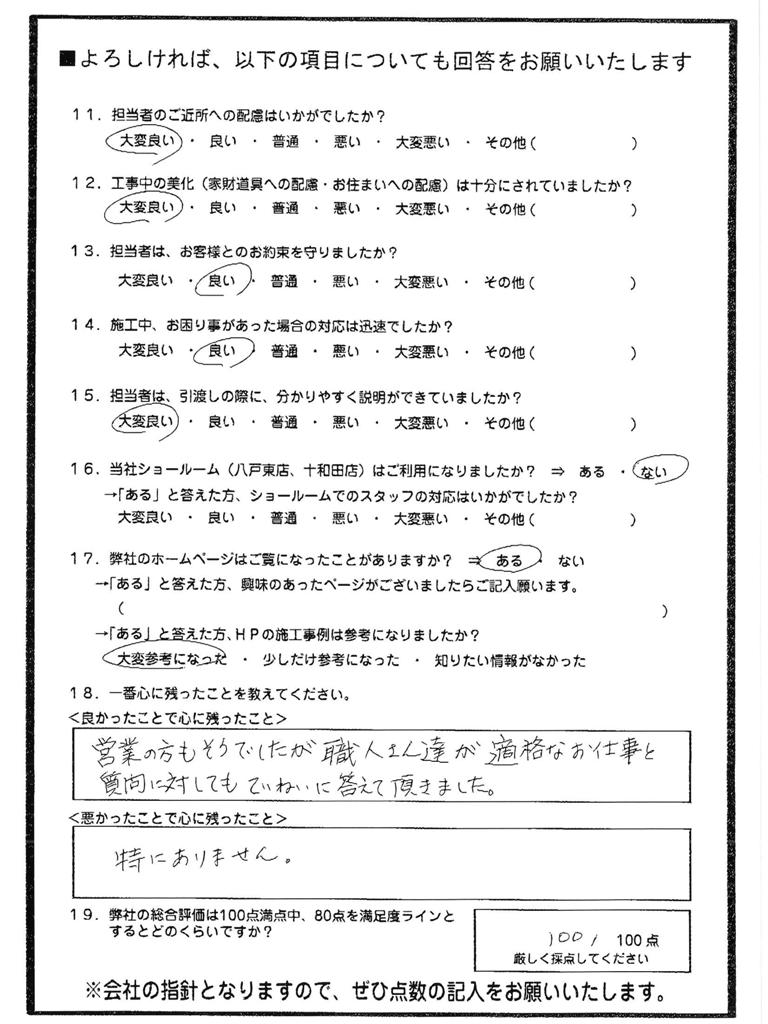 ■よろしければ、以下の項目についても回答をお願いいたします
１１．担当者のご近所への配慮はいかがでしたか？
大変良い ・ 良い ・ 普通 ・ 悪い ・ 大変悪い ・ その他（　　　　　　）
１２．工事中の美化（家財道具への配慮・お住まいへの配慮）は十分にされていましたか？
大変良い ・ 良い ・ 普通 ・ 悪い ・ 大変悪い ・ その他（　　　　　　）
１３．担当者は、お客様とのお約束を守りましたか？
大変良い ・ 良い ・ 普通 ・ 悪い ・ 大変悪い ・ その他（　　　　　　）
１４．施工中、お困り事があった場合の対応は迅速でしたか？
大変良い ・ 良い ・ 普通 ・ 悪い ・ 大変悪い ・ その他（　　　　　　）
１５．担当者は、引渡しの際に、分かりやすく説明ができていましたか？
大変良い ・ 良い ・ 普通 ・ 悪い ・ 大変悪い ・ その他（　　　　　　）
１６．当社ショールーム（八戸東店、十和田店）はご利用になりましたか？ ⇒ ある ・ ない
→「ある」と答えた方、ショールームでのスタッフの対応はいかがでしたか？
大変良い ・ 良い ・ 普通 ・ 悪い ・ 大変悪い ・ その他（　　　　　　）
１７．弊社のホームページはご覧になったことがありますか？ ⇒ ある ・ ない
→「ある」と答えた方、興味のあったページがございましたらご記入願います。
（　　　　　　　　　　　　　　　　　　　　　　　　）
→「ある」と答えた方、ＨＰの施工事例は参考になりましたか？
大変参考になった ・ 少しだけ参考になった ・ 知りたい情報がなかった
１８．一番心に残ったことを教えてください。
＜良かったことで心に残ったこと＞
営業の方もそうでしたが職人さん達が適格なお仕事と
質問に対してもていねいに答えて頂きました。
＜悪かったことで心に残ったこと＞
特にありません。
１９．弊社の総合評価は100点満点中、80点を満足度ラインと
するとどのくらいですか？
100 / 100点
厳しく採点してください
※会社の指針となりますので、ぜひ点数の記入をお願いいたします。